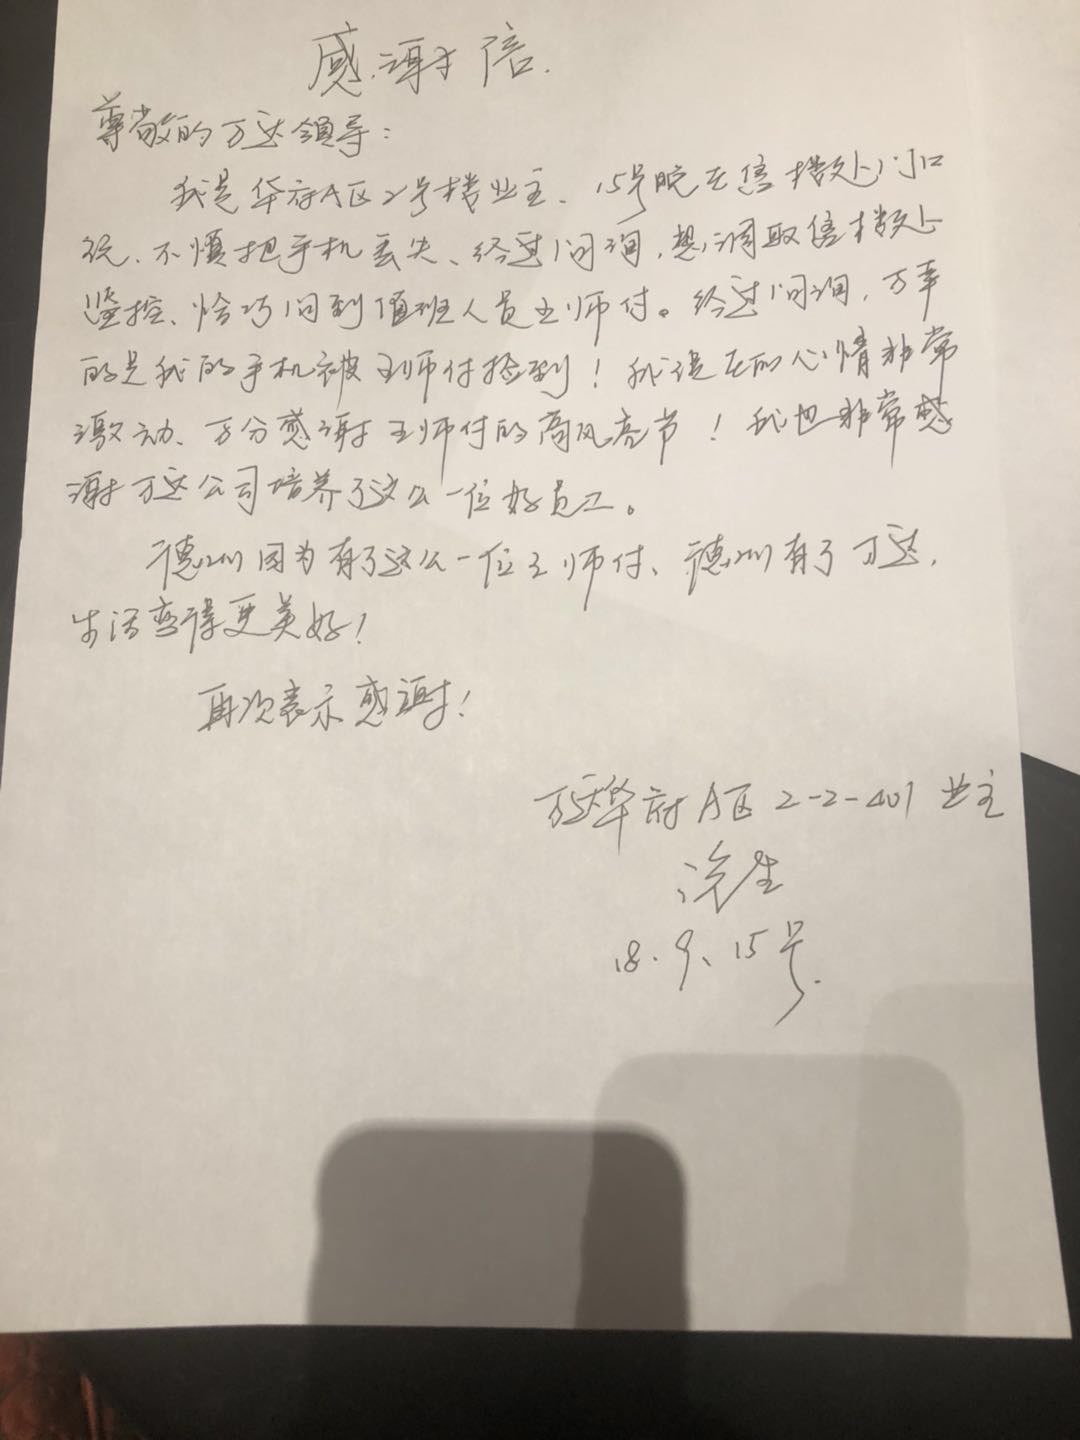 感谢信.
尊敬的万达领导：
我是华府A区2号楼业主、15号晚在售楼处门口
玩、不慎把手机丢失、经过问询,想调取售楼处
监控、恰巧问到值班人员王师付。经过问询,万幸
的是我的手机被王师付捡到！我现在的心情非常
激动、万分感谢王师付的高风亮节！我也非常感
谢万达公司培养了这么一位好员工。
德州因为有了这么一位王师付、德州有了万达,
生活变得更美好！
再次表示感谢！
万达华府A区2-2-401业主
生
18.9、15号.